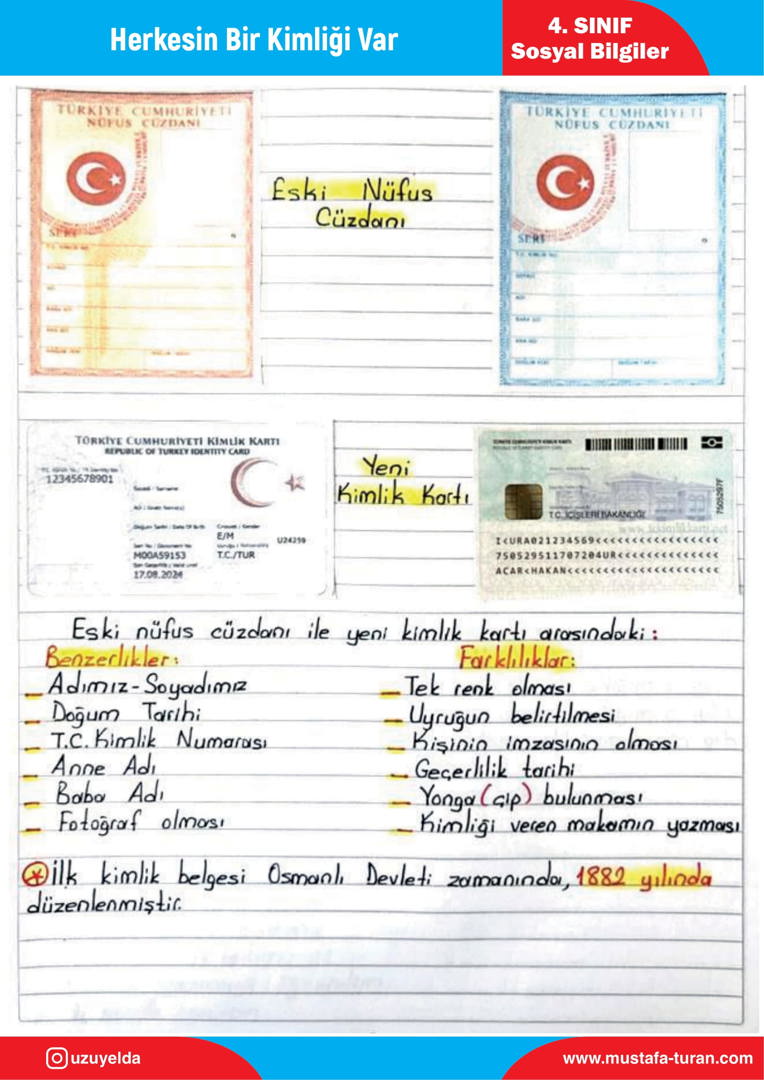 Herkesin Bir Kimliği Var
4. SINIF
Sosyal Bilgiler
TÜRKİYE CUMHURİYETİ
NÜFUS CÜZDANI
SERİ
Eski Nüfus
Cüzdanı
TÜRKİYE CUMHURİYETİ
NÜFUS CÜZDANI
SERİ
TÜRKİYE CUMHURİYETİ KİMLİK KARTI
REPUBLIC OF TURKEY IDENTITY CARD
12345678901
Soyadı / Surname
Adı / Given Name(s)
Doğum Tarihi / Date Of Birth
Cinsiyeti / Gender
E/M
U24259
M00A59153
T.C./TUR
17.08.2024
Yeni
Kimlik Kartı
TÜRKİYE CUMHURİYETİ KİMLİK KARTI
REPUBLIC OF TURKEY IDENTITY CARD
T.C. İÇİŞLERİ BAKANLIĞI
I<URA021234569<<<<<<<<<<<<<<<<<
750529511707204UR<<<<<<<<<<<<<<
ACAR<HAKAN<<<<<<<<<<<<<<<<<<<<<
Eski nüfus cüzdanı ile yeni kimlik kartı arasındaki :
Benzerlikler:
- Adımız-Soyadımız
- Doğum Tarihi
- T.C. Kimlik Numarası
- Anne Adı
- Baba Adı
- Fotoğraf olması
Farklılıklar:
- Tek renk olması
- Uyruğun belirtilmesi
- Kişinin imzasının olması
- Geçerlilik tarihi
- Yonga (çip) bulunması
- Kimliği veren makamın yazması
* İlk kimlik belgesi Osmanlı Devleti zamanında, 1882 yılında
düzenlenmiştir.
uzuyelda
www.mustafa-turan.com